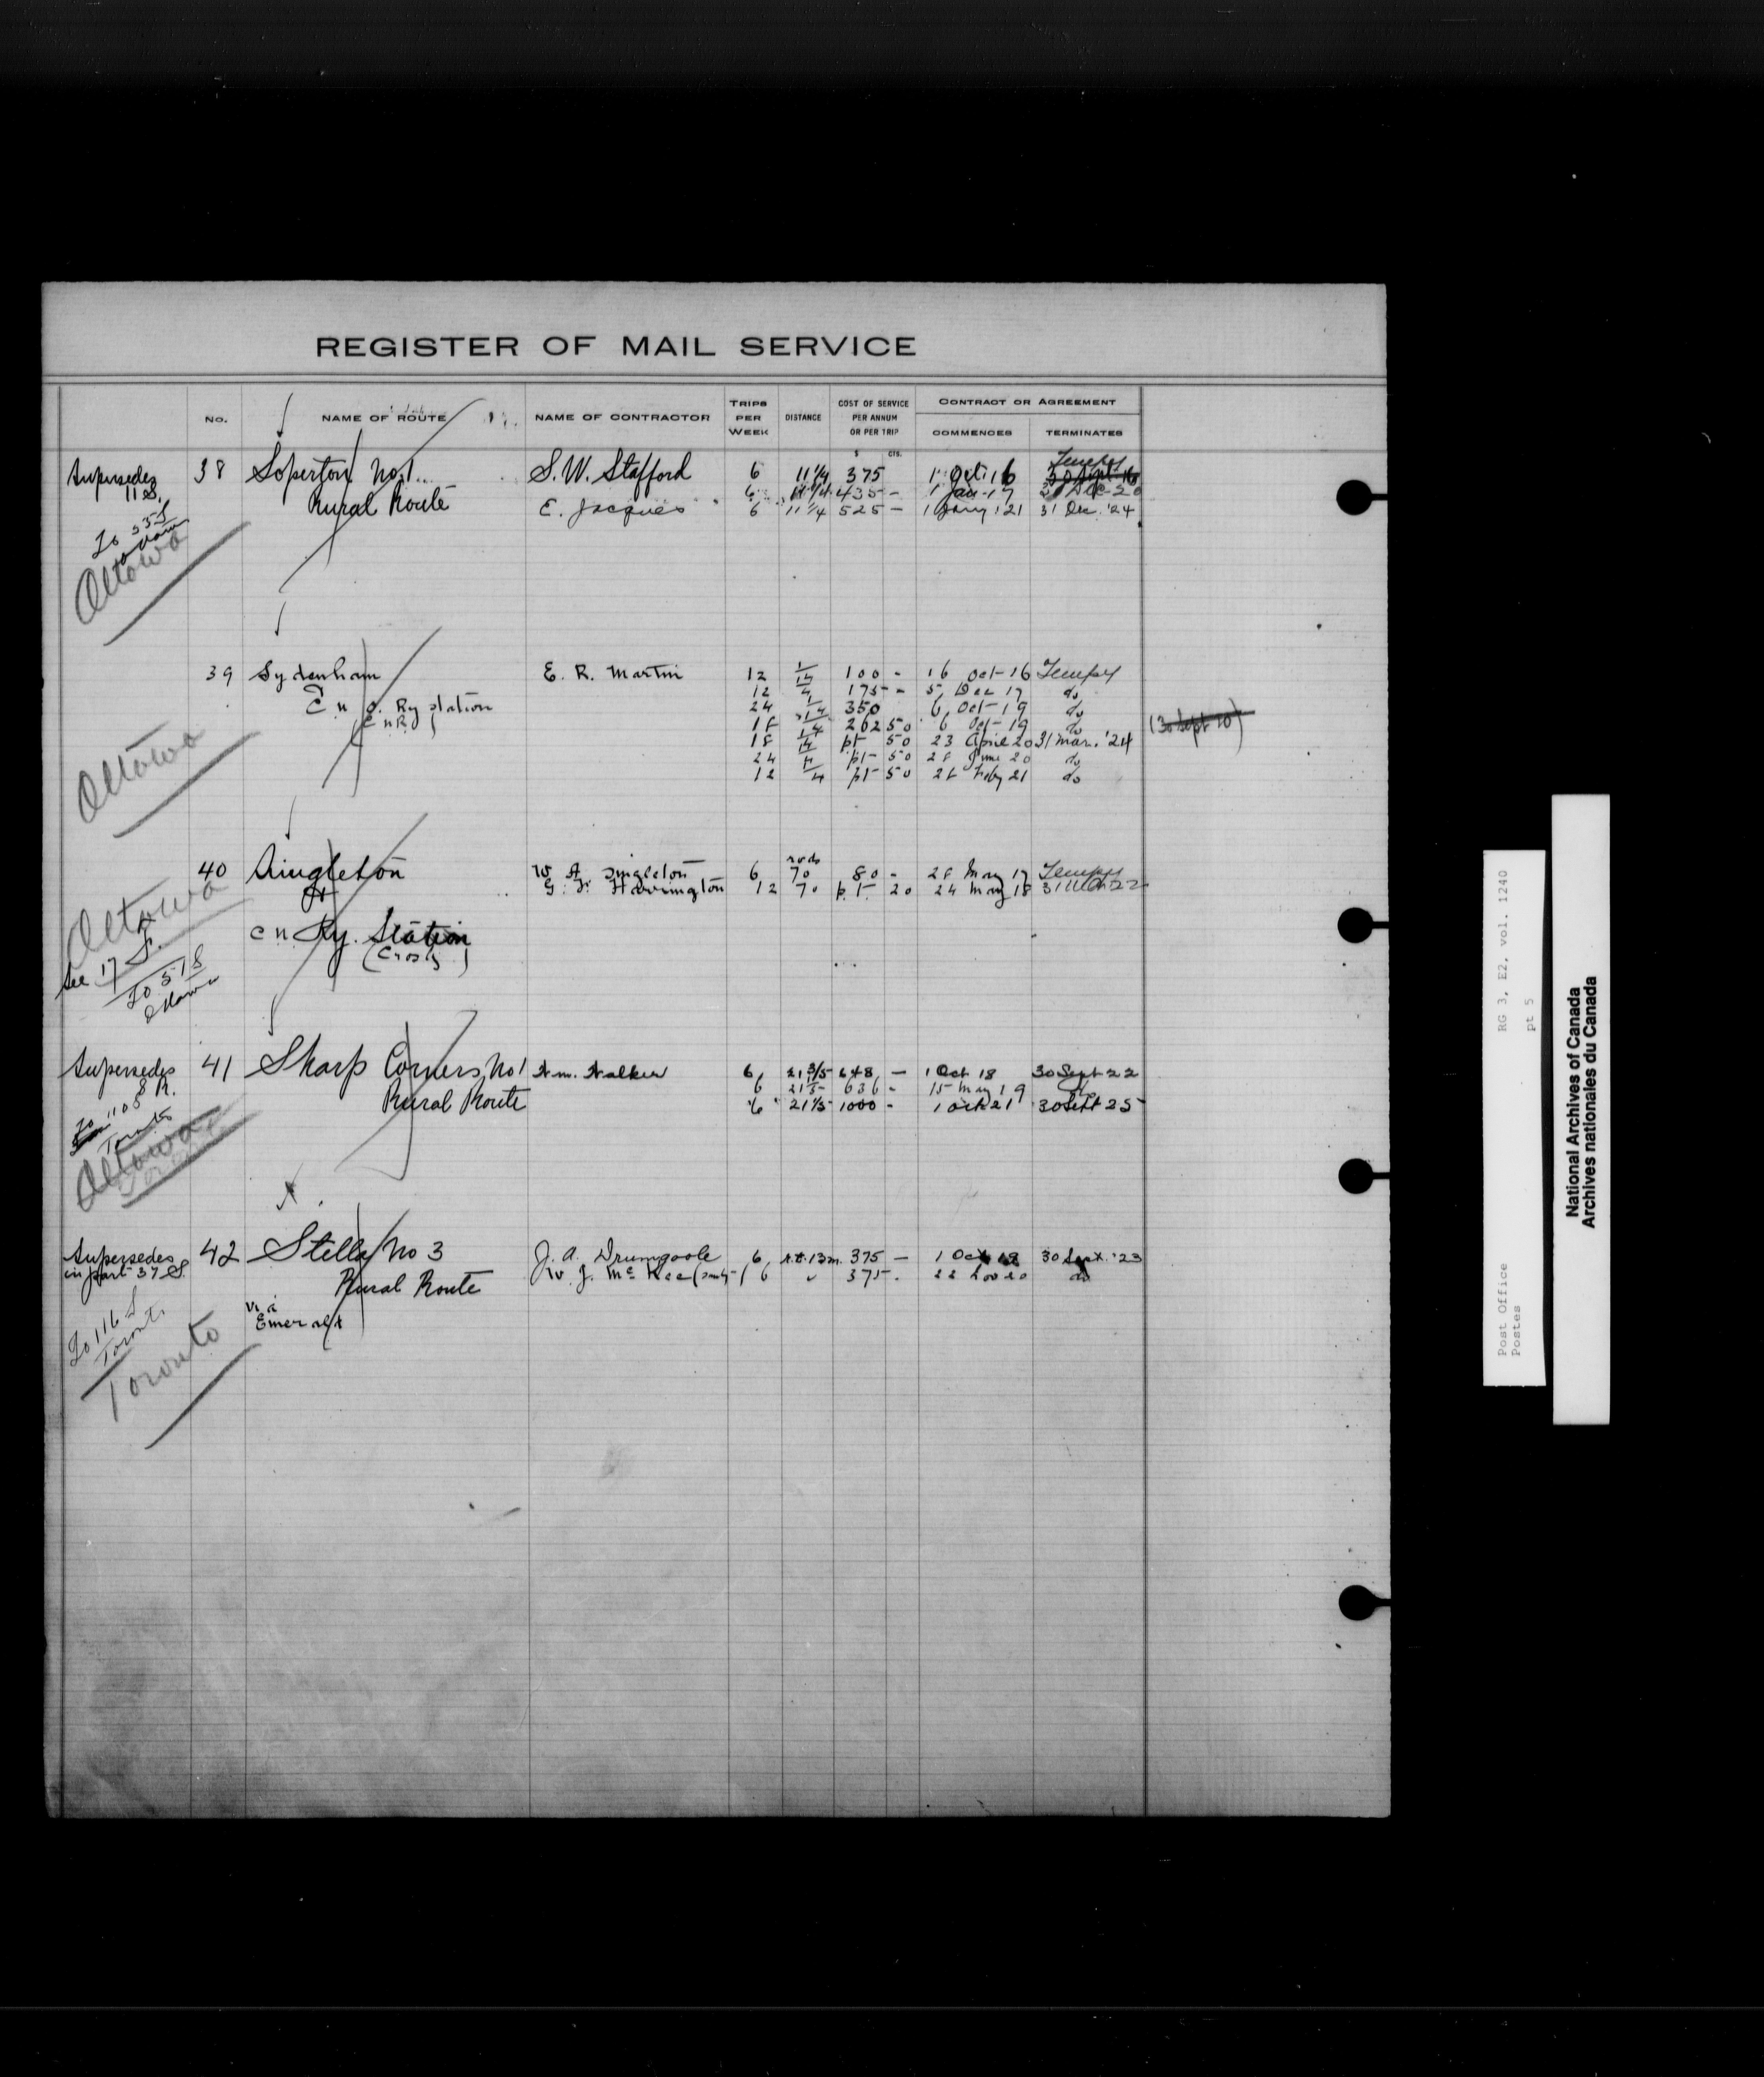 REGISTER OF MAIL SERVICE
No. NAME OF ROUTE NAME OF CONTRACTOR TRIPS PER WEEK DISTANCE COST OF SERVICE PER ANNUM OR PER TRIP CONTRACT OR AGREEMENT
COMMENCES TERMINATES
$ CTS.
Tempy
Supersedes 38 Soperton No. 1 S. W. Stafford 6 11 1/4 375 1 Oct 16 30 Sept 16
11 S. 6 11 1/4 435 - 1 Jan 17 31 Dec 20
Rural Route E. Jacques 6 11 1/4 525 - 1 Jany '21 31 Dec. '24
To 535
Ottawa
Ottawa
39 Sydenham E. R. Martin 12 1/4 100 - 16 Oct-16 Tempy
12 1/4 175 - 5 Dec 17 do
C N O. Ry station 24 1/4 350 6 Oct-19 do
C N R 18 1/4 262 50 6 Oct-19 do (30 Sept 20)
18 1/4 pt 50 23 April 20 31 Mar. '24
24 1/4 pt 50 28 June 20 do
12 1/4 pt 50 28 Feby 21 do
Ottawa
rods
40 Singleton W. A. Singleton 6 70 80 - 28 May 17 Tempy
& G. F. Harrington 12 70 p. t. 20 24 May 18 31 Mch 22
Ottawa
C N Ry. Station
(Crosby)
See 17 S.
To 518
Ottawa
Supersedes 41 Sharp Corners, No 1 Wm. Walker 6 21 3/5 648 - 1 Oct 18 30 Sept 22
8 R. 6 21 1/5 636 - 15 May 19 do
Rural Route 6 21 1/5 1000 - 1 Oct 21 30 Sept 25
To 1108
Toronto
Ottawa
Supersedes 42 Stella No 3 J. A. Drumgoole 6 r.t. 13 m. 375 - 1 Oct 18 30 Sept. '23
in part 37 S. W. J. McKee 6 " 375 - 22 Nov 20 do
Rural Route
via
Emerald
To 116 S
Toronto
Toronto
RG 3, E2, vol. 1240
pt 5
Post Office
Postes
National Archives of Canada
Archives nationales du Canada